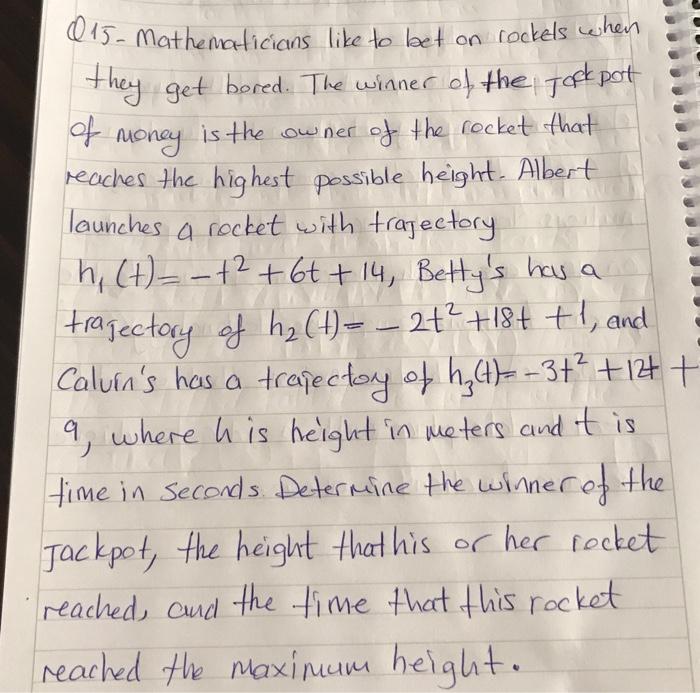 Q15- Mathematicians like to bet on rockets when
they get bored. The winner of the Jackpot
of money is the owner of the rocket that
reaches the highest possible height. Albert
launches a rocket with trajectory
h₁(t)= -t² +6t + 14, Betty's has a
trajectory of h₂(t)= - 2t² +18t +1, and
Calvin's has a trajectory of h₃(t)= -3t² +12t +
9, where h is height in meters and t is
time in seconds. Determine the winner of the
Jackpot, the height that his or her rocket
reached, and the time that this rocket
reached the maximum height.